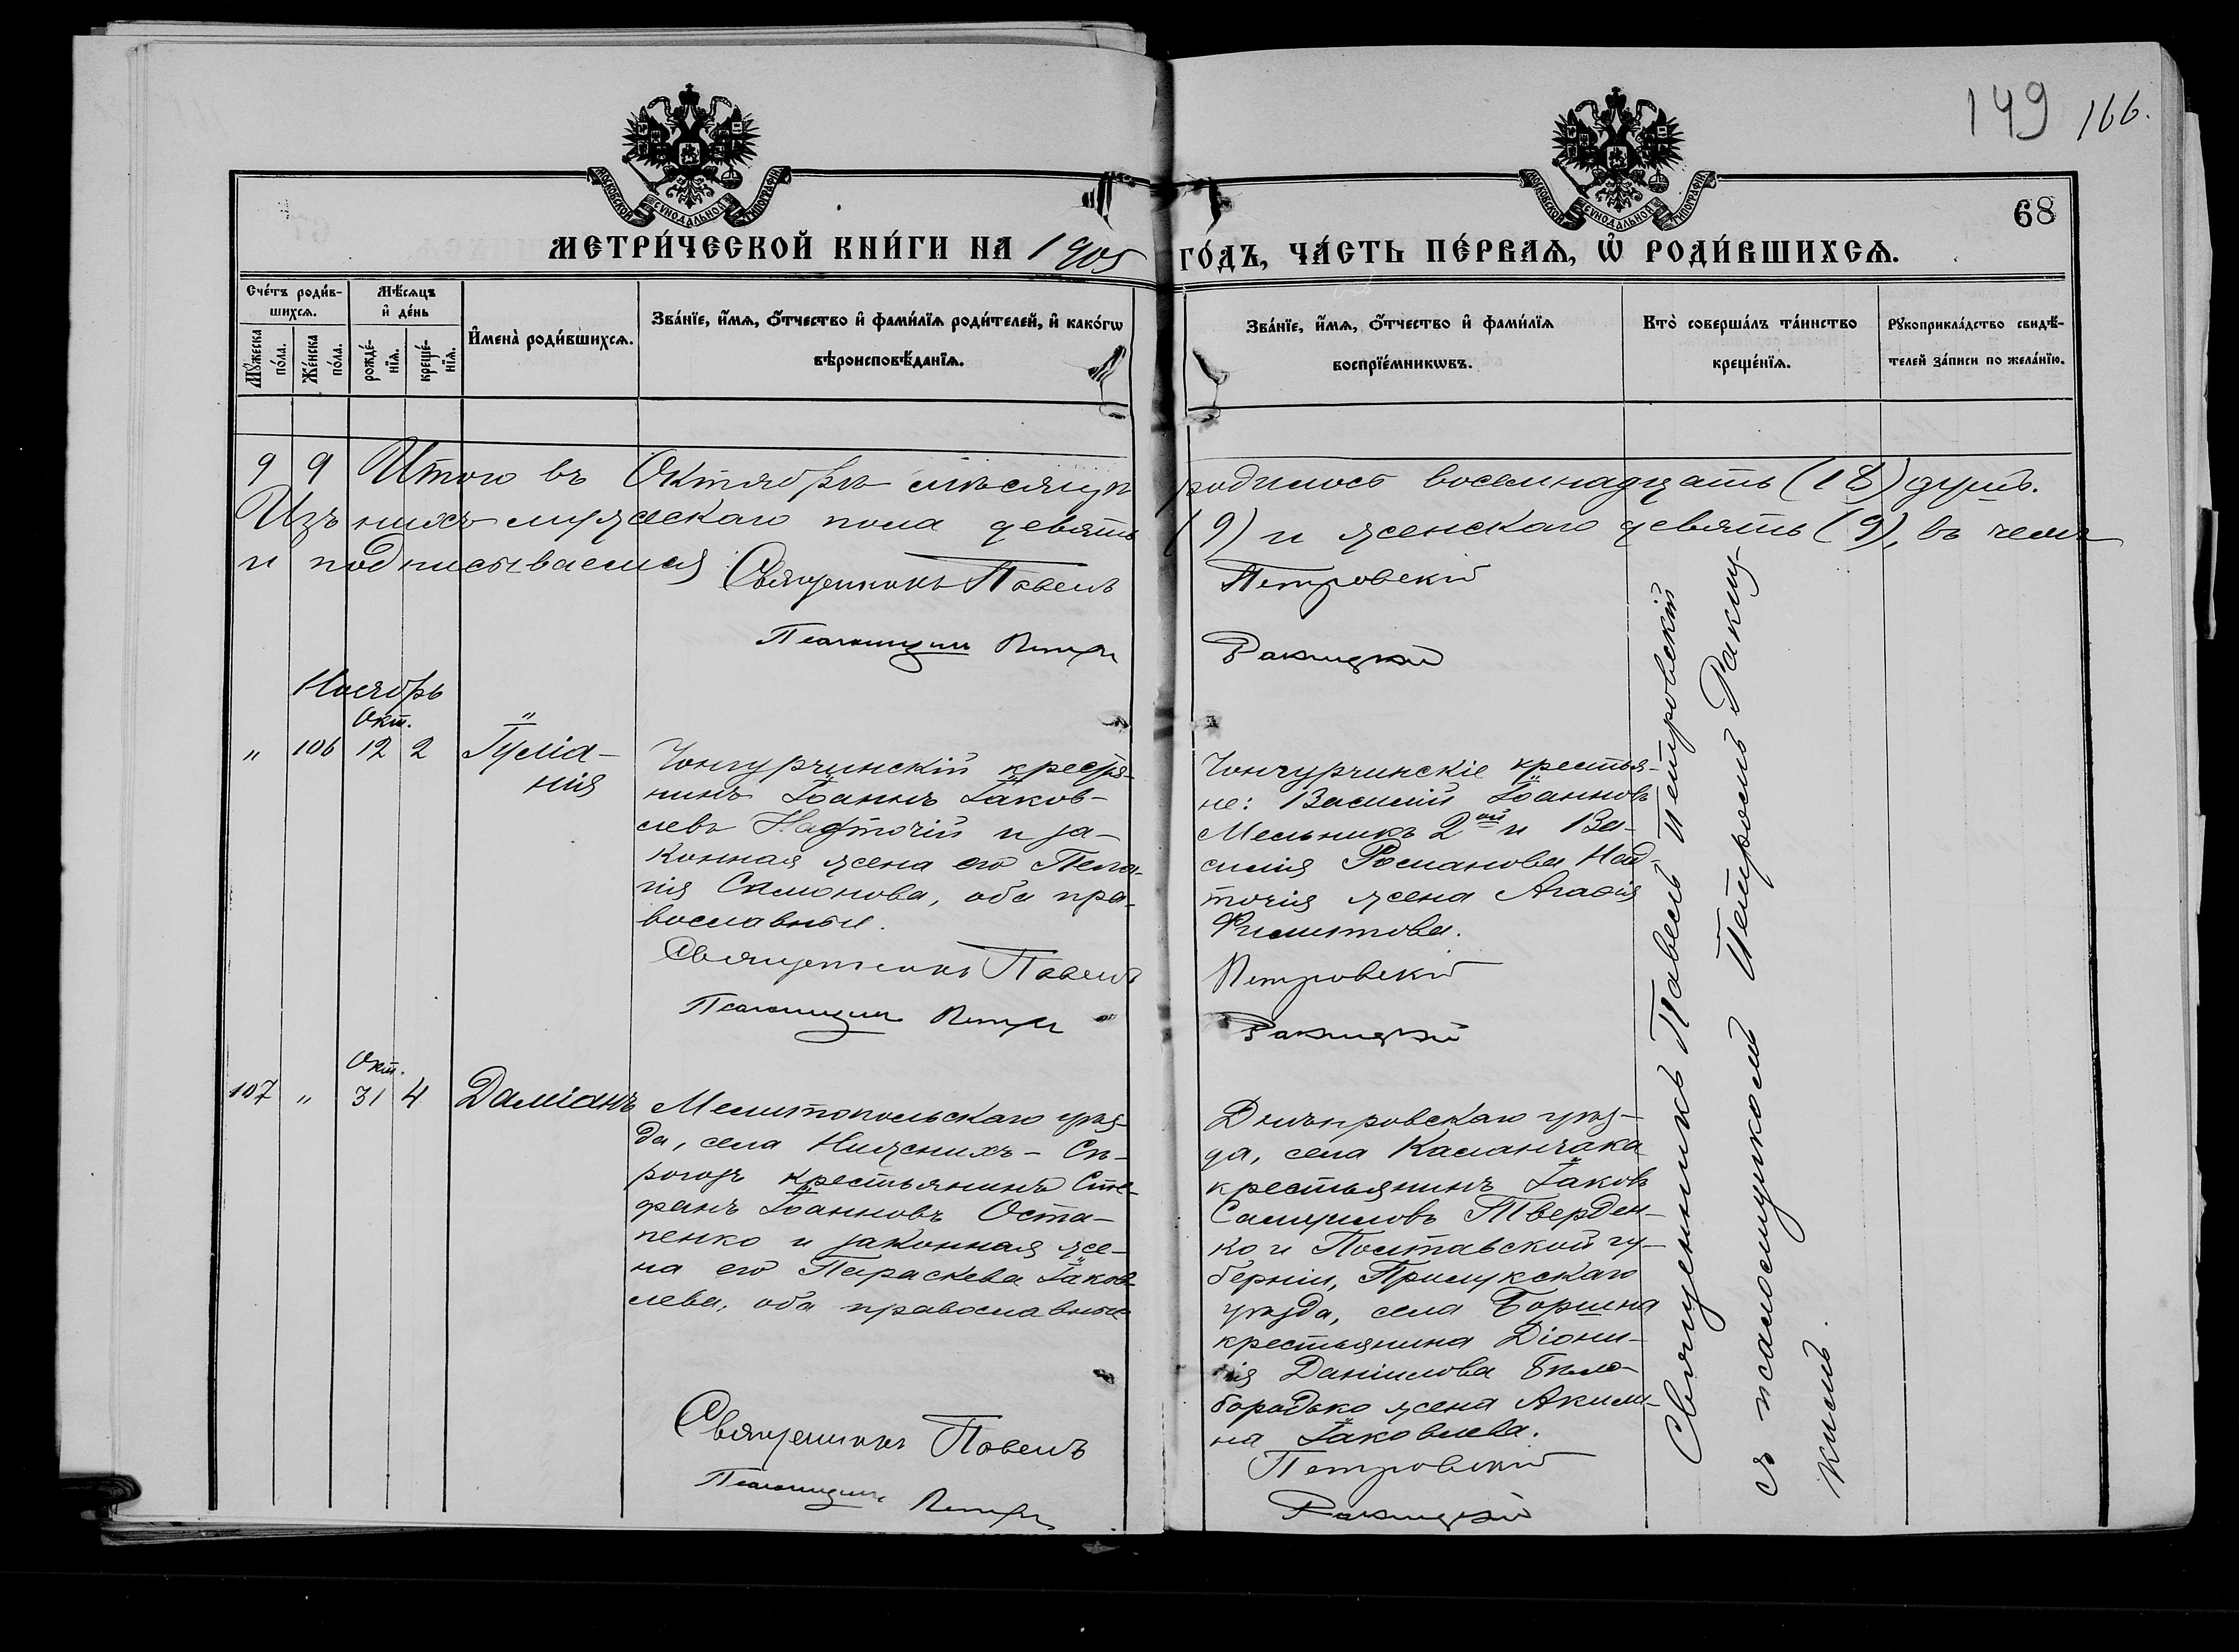 149 166.
МОСКОВСКОЙ СѴНОДАЛЬНОЙ ТИПОГРАФІИ
МОСКОВСКОЙ СѴНОДАЛЬНОЙ ТИПОГРАФІИ
68
МЕТРИ́ЧЕСКОЙ КНИ́ГИ НА 1905 ГО́ДЪ, ЧА́СТЬ ПЕ́РВАѦ, Ѡ҆ РОДИ́ВШИХСѦ.
Сче́тъ роди́в-
шихсѧ.
Мꙋ́жеска
по́ла.
Же́нска
по́ла.
Мѣ́сѧцъ
и҆ де́нь
рожде́-
нїѧ.
креще́-
нїѧ.
И҆мена̀ роди́вшихсѧ.
Зва́нїе, и҆́мѧ, ѻ҆́тчество и҆ фами́лїѧ роди́телей, и҆ како́гѡ
вѣроисповѣ́данїѧ.
Зва́нїе, и҆́мѧ, ѻ҆́тчество и҆ фами́лїѧ
воспрїе́мникѡвъ.
Кто̀ соверша́лъ та́инство
креще́нїѧ.
Рꙋкоприкла́дство свидѣ́-
телей за́писи по жела́нїю.
9 9 Итого въ Октябрѣ мѣсяцѣ родилось восемнадцать (18) душъ.
Изъ нихъ мужескаго пола девять (9) и женскаго девять (9), въ чемъ
и подписываемся Священникъ Павелъ Петровскій
Псаломщикъ Петръ Ракицкій
Ноябрь
Окт.
" 106 12 2 Іуліа-
нія
Чонгурчинскій крестья-
нинъ Іоаннъ Іаков-
левъ Надточій и за-
конная жена его Пела-
гія Симонова, оба пра-
вославные.
Священникъ Павелъ
Псаломщикъ Петръ
Чонгурчинскіе крестья-
не: Василій Іоанновъ
Мельникъ 2ой и Ва-
силія Романова Над-
точія жена Агаѳія
Филиппова.
Петровскій
Ракицкій
Окт.
107 " 31 4 Даміанъ
Мелитопольскаго уѣз-
да, села Нижнихъ-Сѣ-
рогозъ крестьянинъ Сте-
фанъ Іоанновъ Оста-
пенко и законная же-
на его Параскева Іаков-
лева, оба православные
Священникъ Павелъ
Псаломщикъ Петръ
Днѣпровскаго уѣз-
да, села Каланчака
крестьянинъ Іаковъ
Самуиловъ Тверден-
ко и Полтавской гу-
берніи, Прилукскаго
уѣзда, села Боршна
крестьянина Діони-
сія Даніилова Бѣло-
бородько жена Акили-
на Іаковлева.
Петровскій
Ракицкій
Священникъ Павелъ Петровскій
съ псаломщикомъ Петромъ Ракиц-
кимъ.